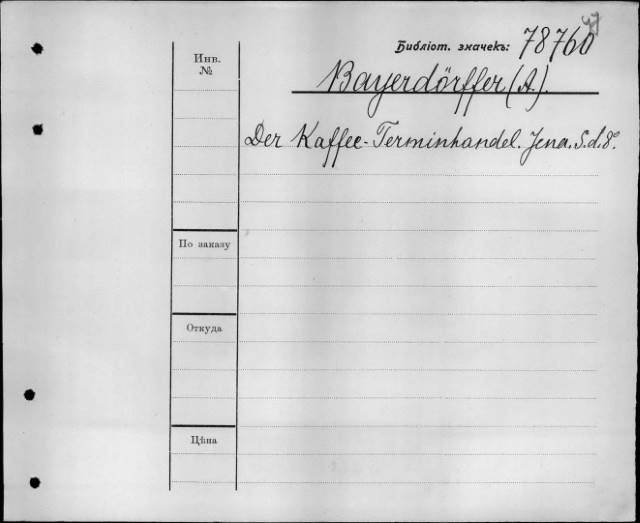 Библіот. значекъ: 78760
Инв.
№
Bayerdörffer (A.).
Der Kaffee-Terminhandel. Jena. S.d. 8°.
По заказу
Откуда
Цѣна